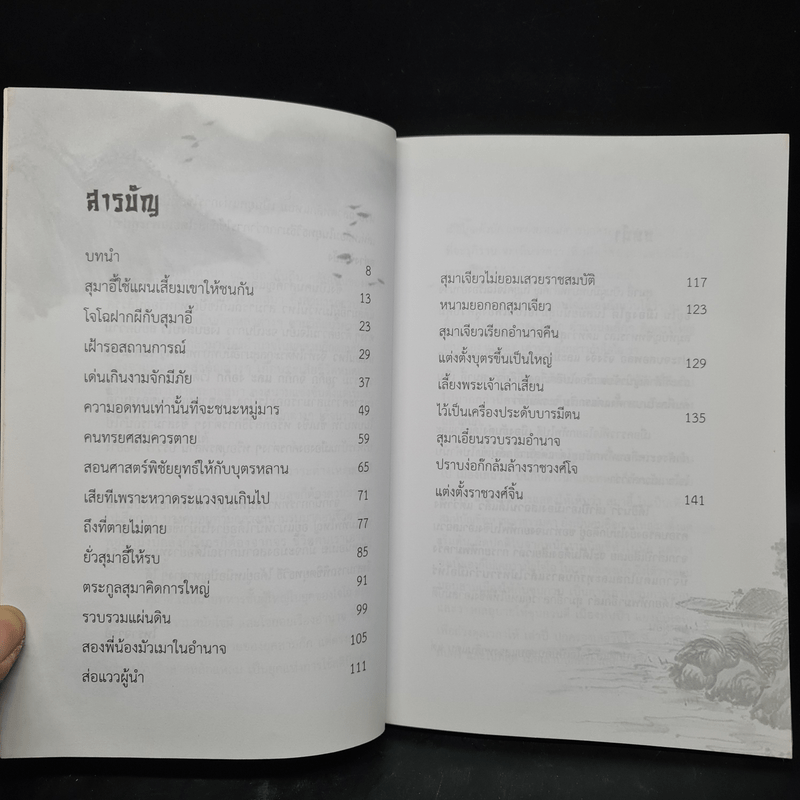 สารบัญ
บทนำ 8
สุมาอี้ใช้แผนเสี้ยมเขาให้ชนกัน 13
โจโฉฝากผีกับสุมาอี้ 23
เฝ้ารอสถานการณ์ 29
เด่นเกินงามจักมีภัย 37
ความอดทนเท่านั้นที่จะชนะหมู่มาร 49
คนทรยศสมควรตาย 59
สอนศาสตร์พิชัยยุทธ์ให้กับบุตรหลาน 65
เสียทีเพราะหวาดระแวงจนเกินไป 71
ถึงที่ตายไม่ตาย 77
ยั่วสุมาอี้ให้รบ 85
ตระกูลสุมาคิดการใหญ่ 91
รวบรวมแผ่นดิน 99
สองพี่น้องมัวเมาในอำนาจ 105
ส่อแววผู้นำ 111
สุมาเจียวไม่ยอมเสวยราชสมบัติ 117
หนามยอกอกสุมาเจียว 123
สุมาเจียวเรียกอำนาจคืน
แต่งตั้งบุตรขึ้นเป็นใหญ่ 129
เลี้ยงพระเจ้าเล่าเสี้ยน
ไว้เป็นเครื่องประดับบารมีตน 135
สุมาเอี๋ยนรวบรวมอำนาจ
ปราบง่อก๊กล้มล้างราชวงศ์โจ
แต่งตั้งราชวงศ์จิ้น 141